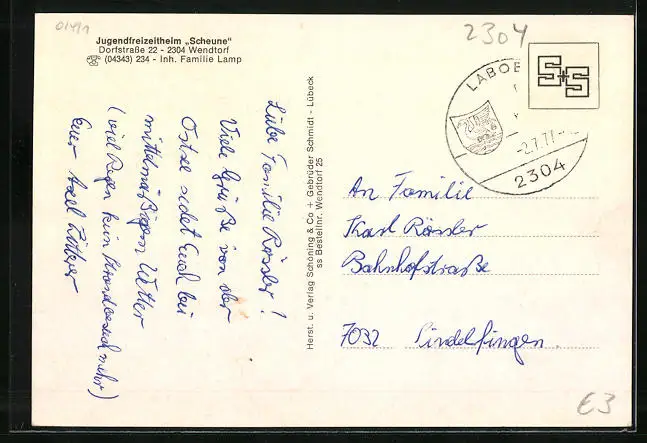 01491
Jugendfreizeitheim „Scheune"
Dorfstraße 22 - 2304 Wendtorf
☎ (04343) 234 - Inh. Familie Lamp
2304
LABOE
-2.7.71-
2304
S+S
Liebe Familie Rössler!
Viele Grüße von der
Ostsee sendet Euch bei
mittelmäßigem Wetter
(viel Regen kein Strandbesuch mehr)
Euer Axel
Herst. u. Verlag Schöning & Co + Gebrüder Schmidt - Lübeck
ss Bestellnr. Wendtorf 25
An Familie
Karl Rössler
Bahnhofstraße
7032 Sindelfingen
€3